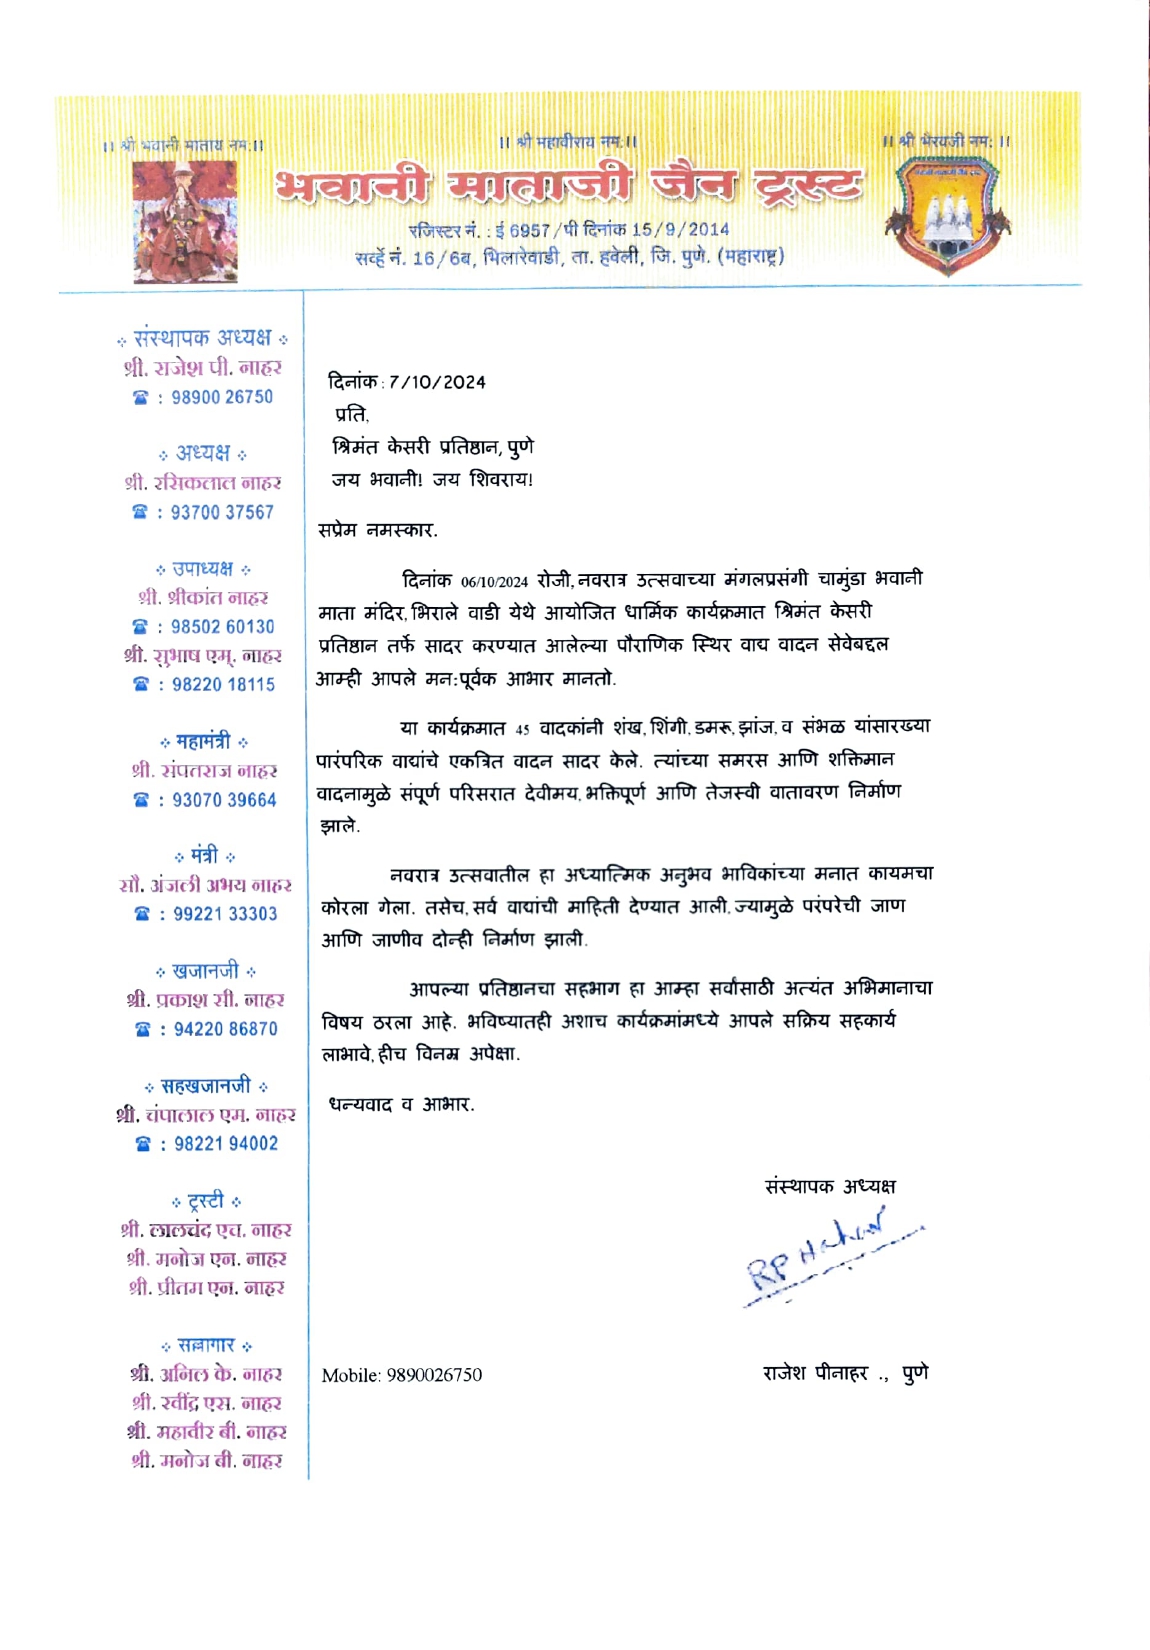 ।। श्री भवानी माताय नम:।।
।। श्री महावीराय नम:।।
।। श्री भैरवजी नम: ।।
भवानी माताजी जैन ट्रस्ट
रजिस्टर नं. : ई 6957/पी दिनांक 15/9/2014
सर्व्हे नं. 16/6ब, भिलारेवाडी, ता. हवेली, जि. पुणे. (महाराष्ट्र)
संस्थापक अध्यक्ष
श्री. राजेश पी. नाहर
☎ : 98900 26750
अध्यक्ष
श्री. रसिकलाल नाहर
☎ : 93700 37567
उपाध्यक्ष
श्री. श्रीकांत नाहर
☎ : 98502 60130
श्री. सुभाष एम्. नाहर
☎ : 98220 18115
महामंत्री
श्री. संपतराज नाहर
☎ : 93070 39664
मंत्री
सौ. अंजली अभय नाहर
☎ : 99221 33303
खजानजी
श्री. प्रकाश सी. नाहर
☎ : 94220 86870
सहखजानजी
श्री. चंपालाल एम. नाहर
☎ : 98221 94002
ट्रस्टी
श्री. लालचंद एच. नाहर
श्री. मनोज एन. नाहर
श्री. प्रीतम एन. नाहर
सल्लागार
श्री. अनिल के. नाहर
श्री. रवींद्र एस. नाहर
श्री. महावीर बी. नाहर
श्री. मनोज बी. नाहर
दिनांक : 7/10/2024
प्रति,
श्रिमंत केसरी प्रतिष्ठान, पुणे
जय भवानी! जय शिवराय!
सप्रेम नमस्कार.
दिनांक 06/10/2024 रोजी, नवरात्र उत्सवाच्या मंगलप्रसंगी चामुंडा भवानी
माता मंदिर, भिराले वाडी येथे आयोजित धार्मिक कार्यक्रमात श्रिमंत केसरी
प्रतिष्ठान तर्फे सादर करण्यात आलेल्या पौराणिक स्थिर वाद्य वादन सेवेबद्दल
आम्ही आपले मन:पूर्वक आभार मानतो.
या कार्यक्रमात 45 वादकांनी शंख, शिंगी, डमरू, झांज, व संभळ यांसारख्या
पारंपरिक वाद्यांचे एकत्रित वादन सादर केले. त्यांच्या समरस आणि शक्तिमान
वादनामुळे संपूर्ण परिसरात देवीमय, भक्तिपूर्ण आणि तेजस्वी वातावरण निर्माण
झाले.
नवरात्र उत्सवातील हा अध्यात्मिक अनुभव भाविकांच्या मनात कायमचा
कोरला गेला. तसेच, सर्व वाद्यांची माहिती देण्यात आली, ज्यामुळे परंपरेची जाण
आणि जाणीव दोन्ही निर्माण झाली.
आपल्या प्रतिष्ठानचा सहभाग हा आम्हा सर्वांसाठी अत्यंत अभिमानाचा
विषय ठरला आहे. भविष्यातही अशाच कार्यक्रमांमध्ये आपले सक्रिय सहकार्य
लाभावे, हीच विनम्र अपेक्षा.
धन्यवाद व आभार.
संस्थापक अध्यक्ष
RP Nahar
Mobile: 9890026750
राजेश पीनाहर ., पुणे